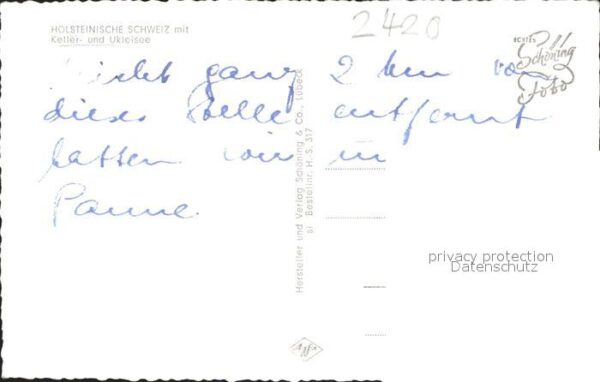 HOLSTEINISCHE SCHWEIZ mit
Keller- und Ukleisee
2420
ECHTES
Schöning
Foto
Nicht ganz 2 km von
dieser Stelle entfernt
hatten wir
Panne.
Hersteller und Verlag Schöning & Co., Lübeck
si Bestellnr. H.-S. 317
privacy protection
Datenschutz
Agfa